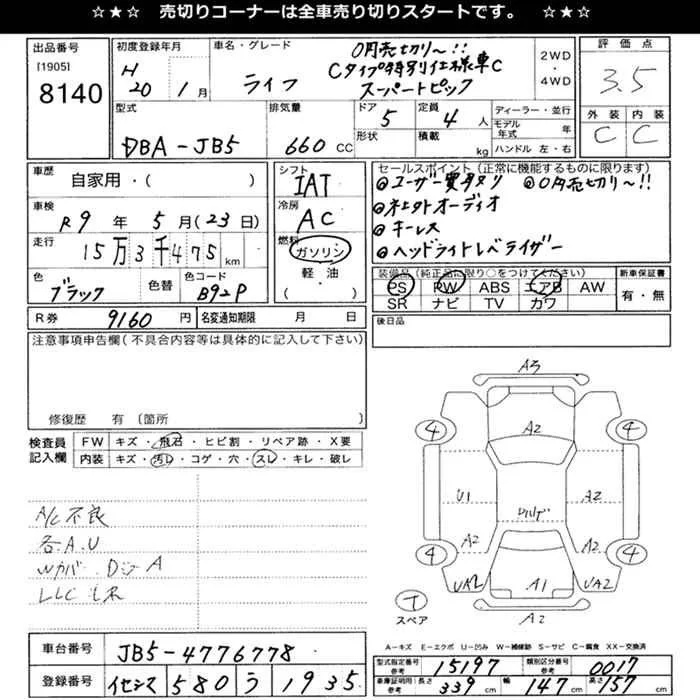 ☆★☆ 売切りコーナーは全車売り切りスタートです。 ☆★☆
出品番号
[1905]
8140
初度登録年月
H20 1月
車名・グレード
ライフ
0円売切り〜!!
Cタイプ特別仕様車C
スーパートピック
2WD
・
4WD
評価点
3.5
外装 内装
C C
型式
DBA-JB5
排気量
660 CC
ドア
5
形状
定員
4人
積載
kg
ディーラー・並行
モデル年式 年
ハンドル 左・右
車歴
自家用・( )
車検
R9年5月(23日)
走行
15万3千475km
色
ブラック
色替
色コード
B92P
シフト
IAT
冷房
AC
燃料
ガソリン
軽 油
( )
セールスポイント(正常に機能するものに限ります)
◎ユーザー買取り ◎0円売切り〜!!
◎社外オーディオ
◎キーレス
◎ヘッドライトレベライザー
装備品(純正品に限り○をつけてください)
PS PW ABS エアB AW
SR ナビ TV カワ
新車保証書
有・無
R券 9160円
名変通知期限 月 日
後日品
注意事項申告欄(不具合内容等は具体的に記入して下さい)
修復歴 有(箇所
検査員記入欄
FW キズ・飛石・ヒビ割・リペア跡・X要
内装 キズ・汚レ・コゲ・穴・スレ・キレ・破レ
A/C不良
各A.U
Wカバー D A
LLC
A3
A2
4 4
U1 A2
ルーフ
A2 A2
4 4
UA2 A1 UA2
A2
T
スペア
A-キズ E-エクボ U-凹み W-補修跡 S-サビ C-腐食 XX-交換済
車台番号 JB5-4776778
登録番号 580 う 1935
型式指定番号 参考 15197
類別区分番号 参考 0017
車庫証明用 参考 長さ 339 cm 幅 147 cm 高さ 157 cm